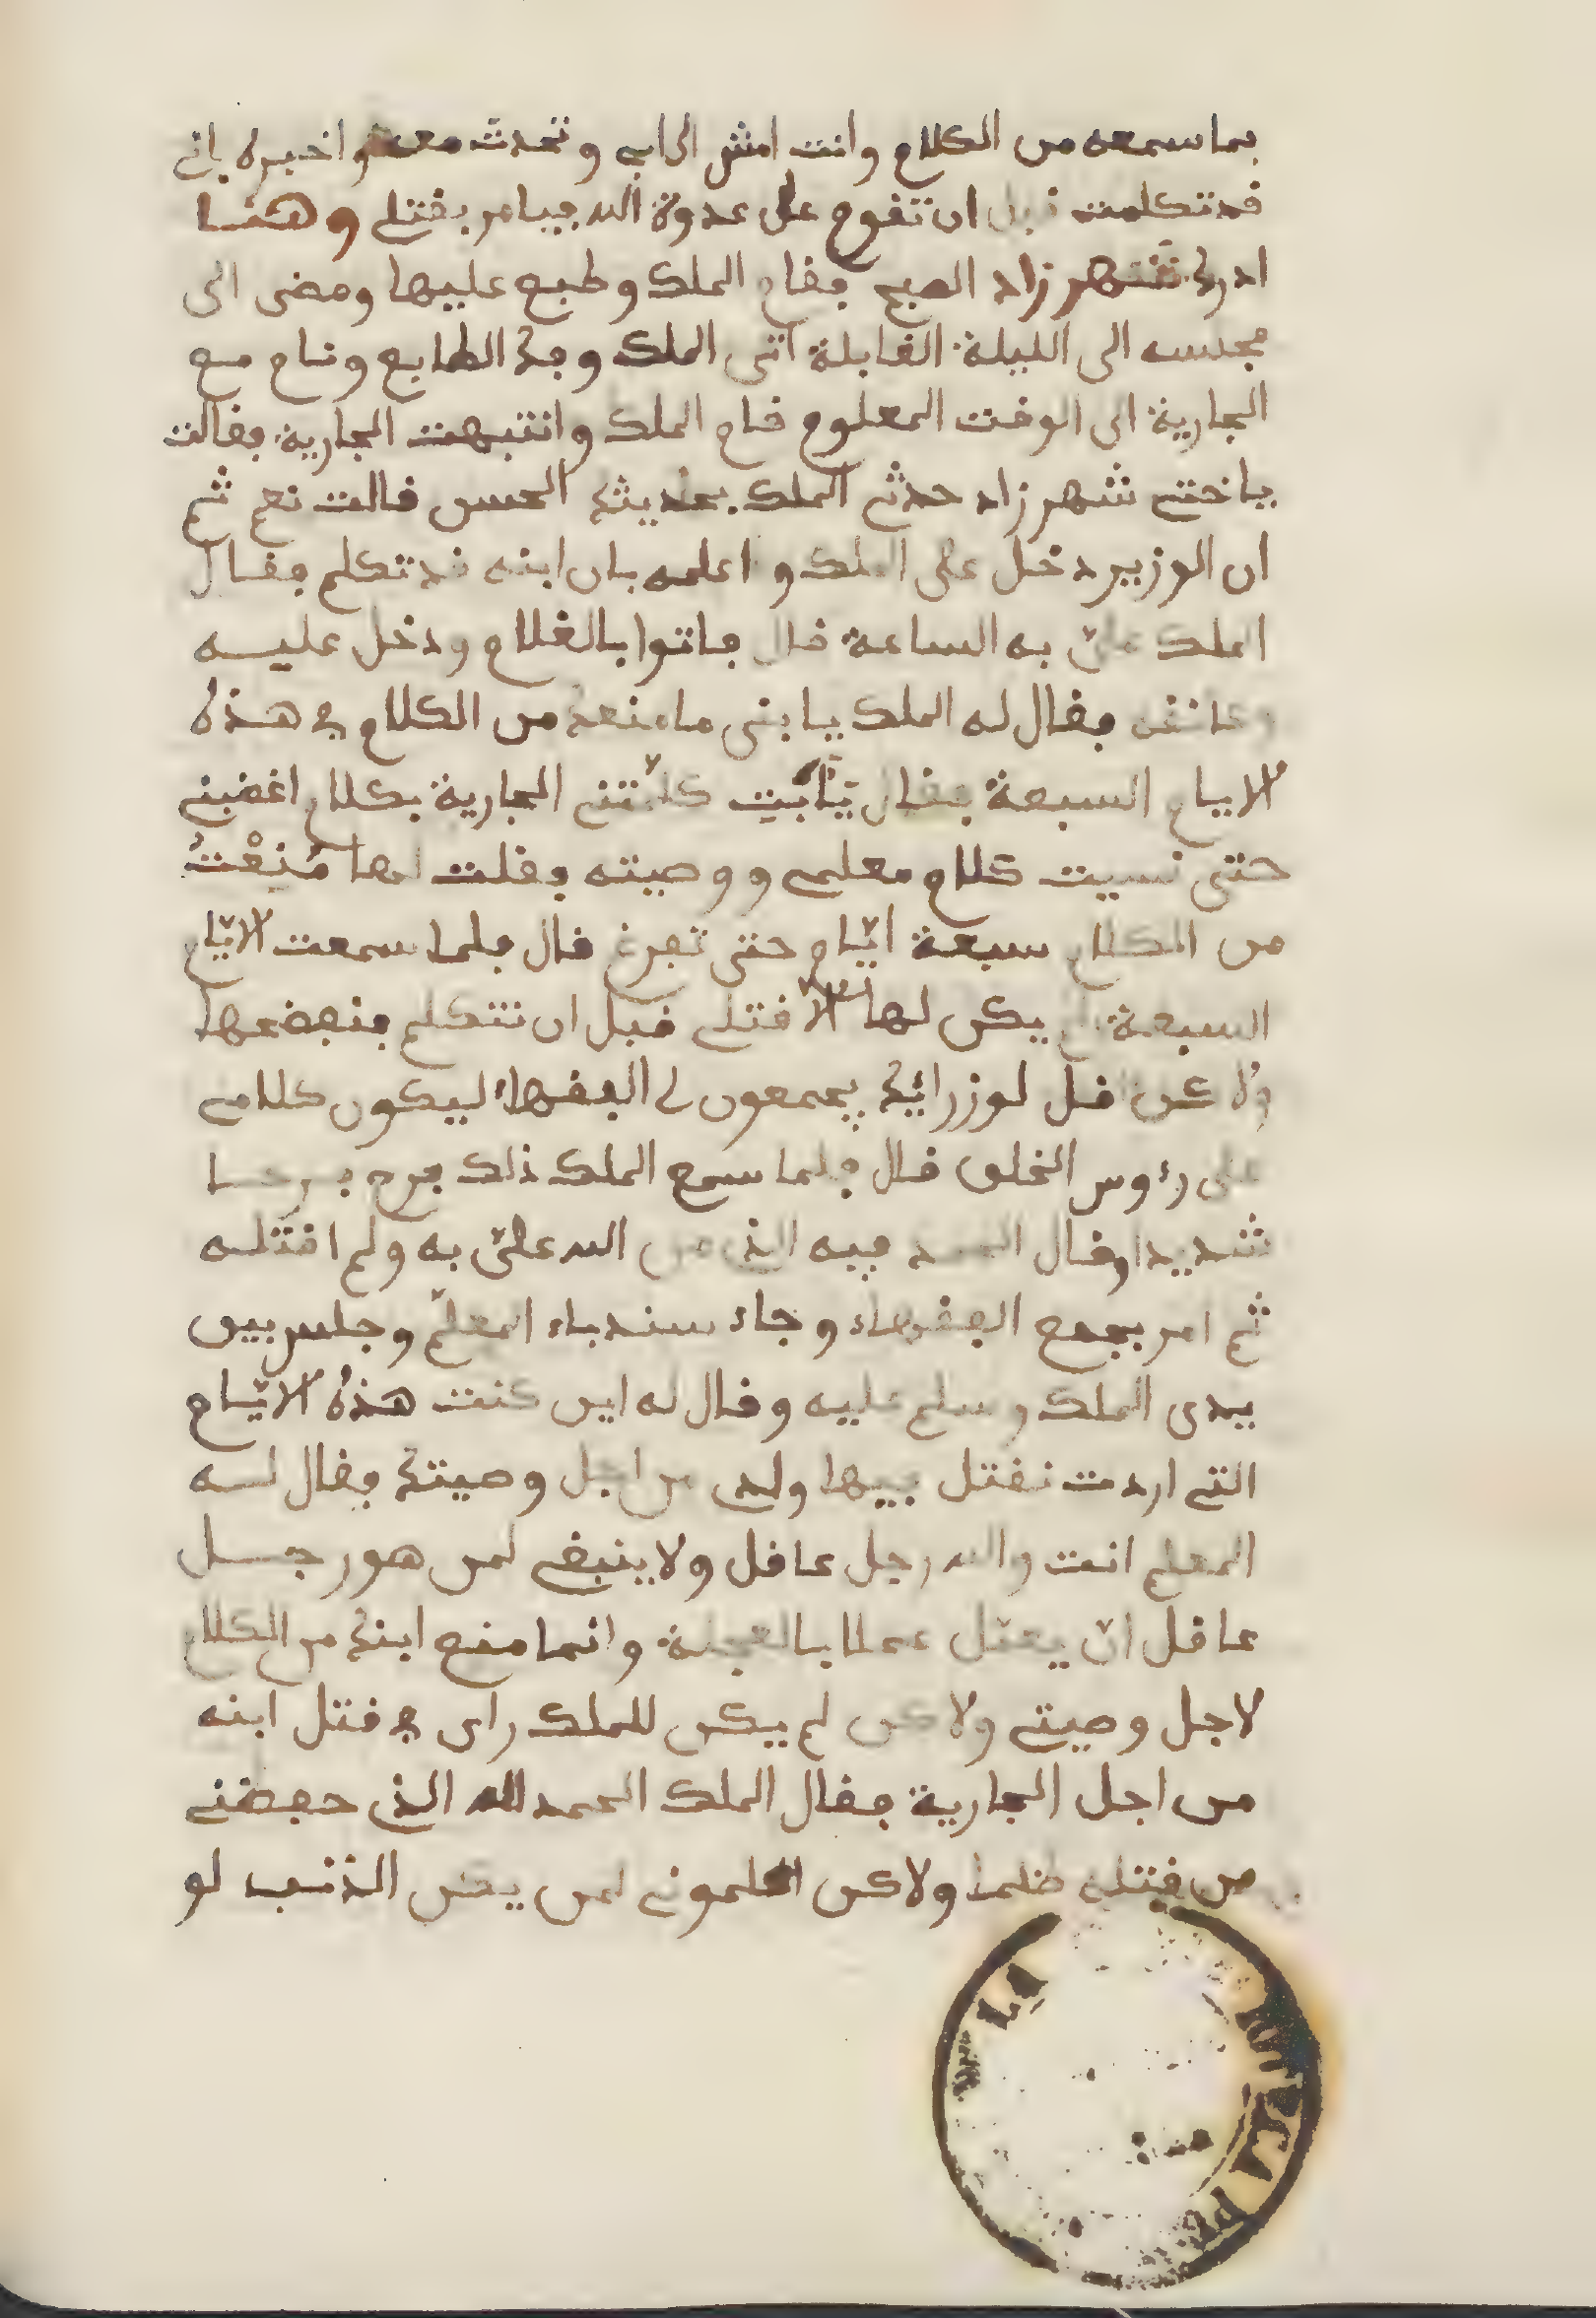 بما سمعه من الكلام وانت امش الى ابي وتحدث معه واخبره باني
قد تكلمت قبل ان تقوم على عدوة الله فيامر بقتلي وهنا
ادرك شهرزاد الصبح فقام الملك وطبع عليها ومضى الى
مجلسه الى الليلة القابلة اتى الملك وفك الطابع ونام مع
الجارية الى الوقت المعلوم قام الملك وانتبهت الجارية فقالت
يا ختي شهرزاد حدثي الملك بحديثك الحسن قالت نعم ثم
ان الوزير دخل على الملك واعلمه بان ابنه قد تكلم فقال
الملك عليّ به الساعة قال فاتوا بالغلام ودخل عليه
وعانقه فقال له الملك يا بني ما منعك من الكلام في هذه
الايام السبعة فقال يَٰأَبَتِ كلّمتني الجارية بكلام اغضبني
حتى نسيت كلام معلمي ووصيته فقلت لها مُنِعْتُ
من الكلام سبعة ايّام حتى تفرغ قال فلما سمعت الايّام
السبعة لم يكن لها الا قتلي قبل ان نتكلم فنفضحها
ولاكن قل لوزرائك يجمعون لي الفقهاء ليكون كلامي
على رءوس الخلق قال فلما سمع الملك ذلك فرح فرحا
شديدا وقال الحمد فيه الذي من الله عليّ به ولم اقتله
ثم امر بجمع الفقهاء وجاء سندباد المعلّم وجلس بين
يدى الملك وسلم عليه وقال له اين كنت هذه الايّام
التي اردت نقتل فيها ولدي من اجل وصيتك فقال له
المعلم انت والله رجل عاقل ولا ينبغي لمن هو رجل
عاقل انّ يعمل عملا بالعجلة وانما منع ابنك من الكلام
لاجل وصيتي ولاكن لم يكن للملك راى في قتل ابنه
من اجل الجارية فقال الملك الحمد لله الذي حفضني
من قتله ظلما ولاكن اعلموني لمن يكن الذنب لو